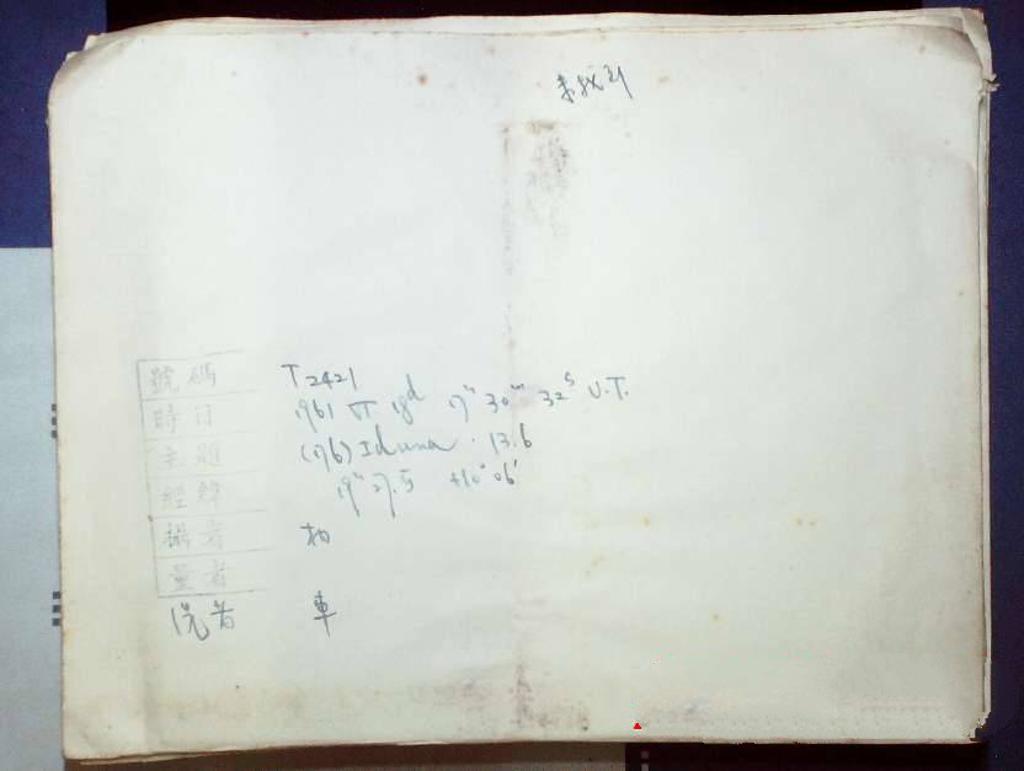 號碼 T2421
時日 1961 VI 18ᵈ 17ʰ 30ᵐ 32ˢ U.T.
主題 (176) Iduna · 13.6
經緯 19ʰ 27.5 +10° 06'
攝者
量者
洗者 車